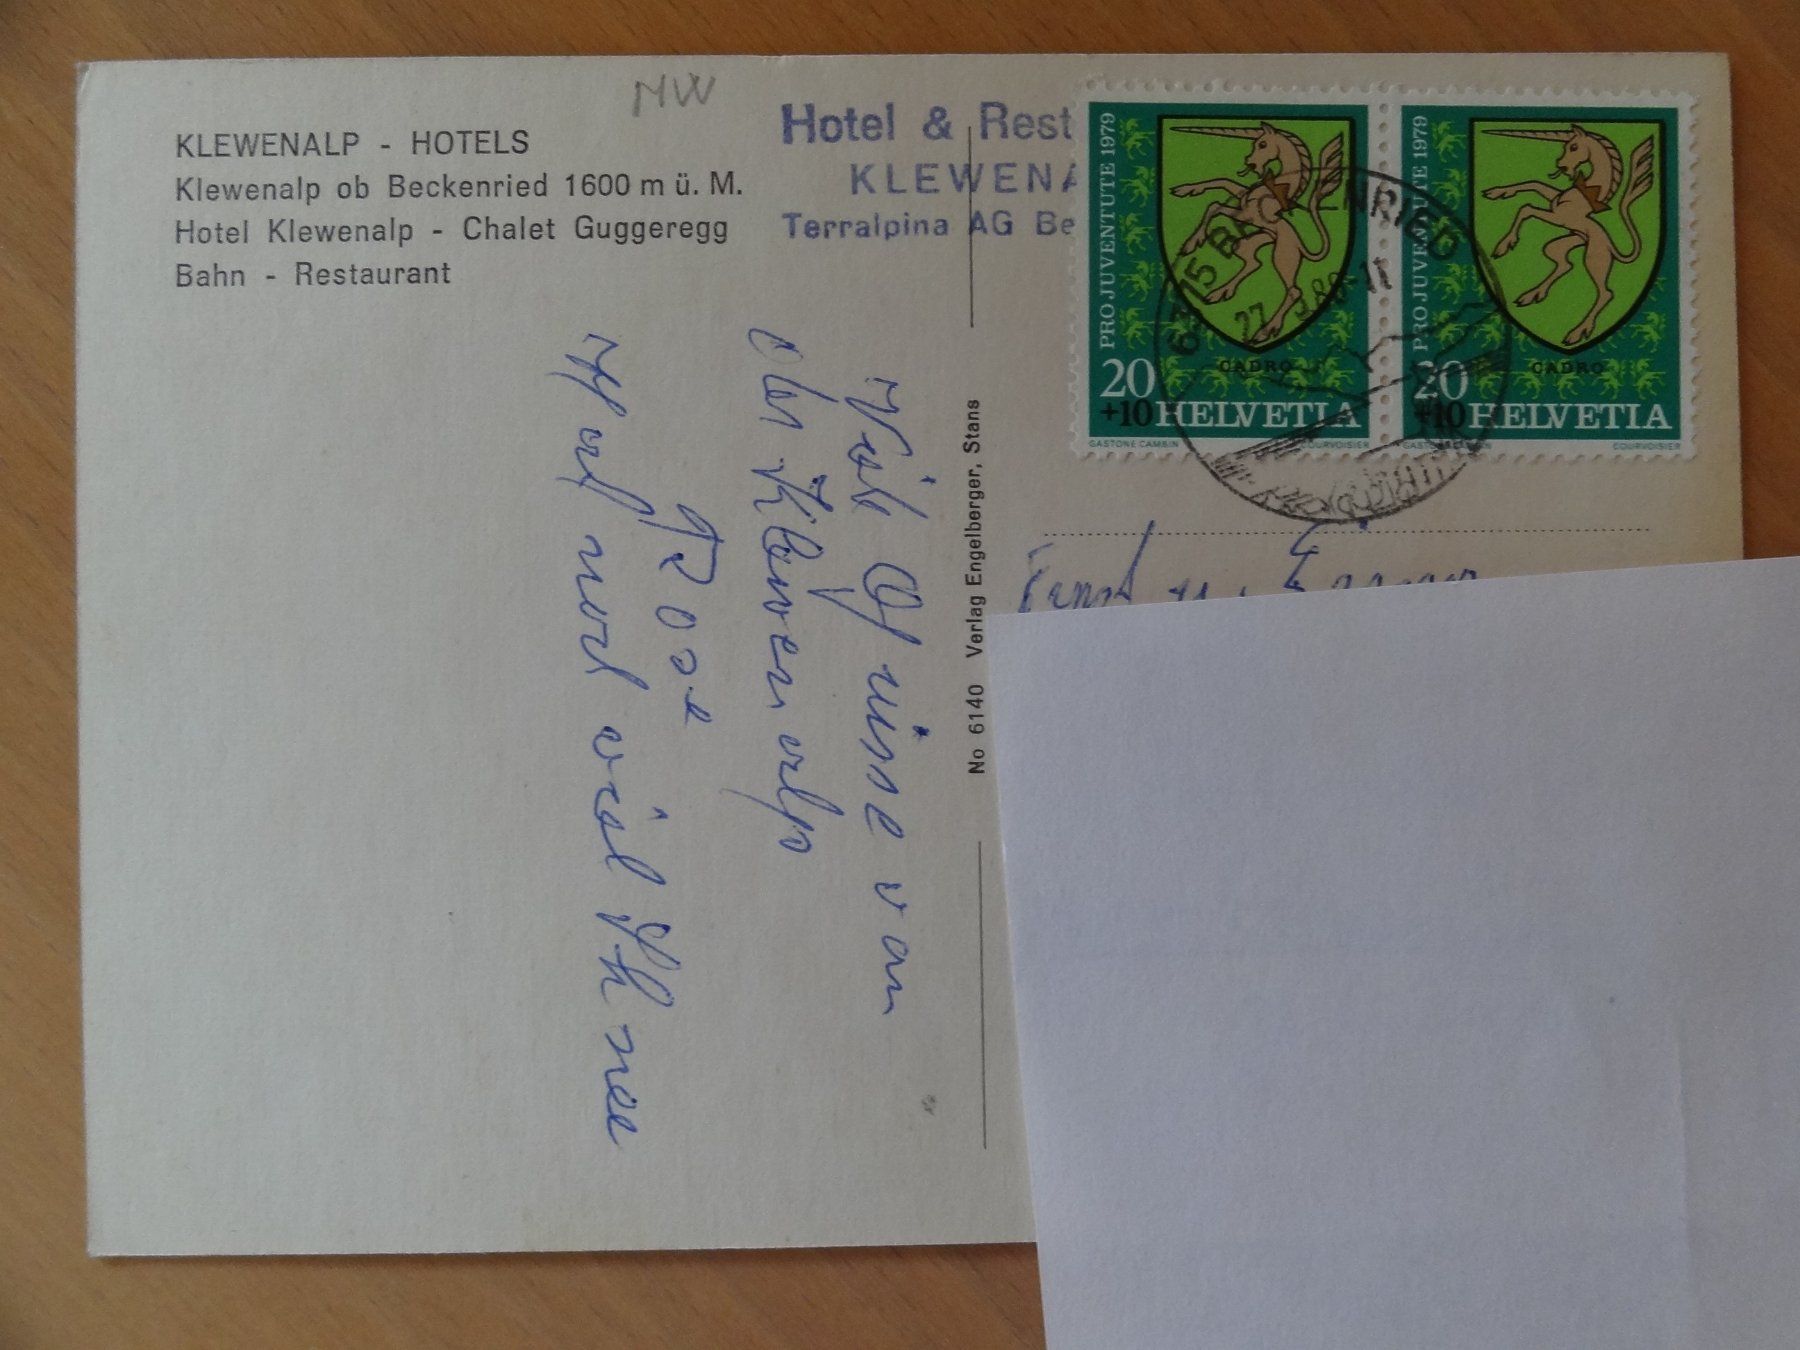 NW
KLEWENALP - HOTELS
Klewenalp ob Beckenried 1600 m ü. M.
Hotel Klewenalp - Chalet Guggeregg
Bahn - Restaurant
Hotel & Rest
KLEWENA
Terralpina AG Be
PRO JUVENTUTE 1979
CADRO
20
+10 HELVETIA
GASTONE CAMBIN COURVOISIER
PRO JUVENTUTE 1979
CADRO
20
+10 HELVETIA
COURVOISIER
6375 BECKENRIED
27
No 6140 Verlag Engelberger, Stans
Viele Grüsse von
der Klewenalp
Rosa
viel